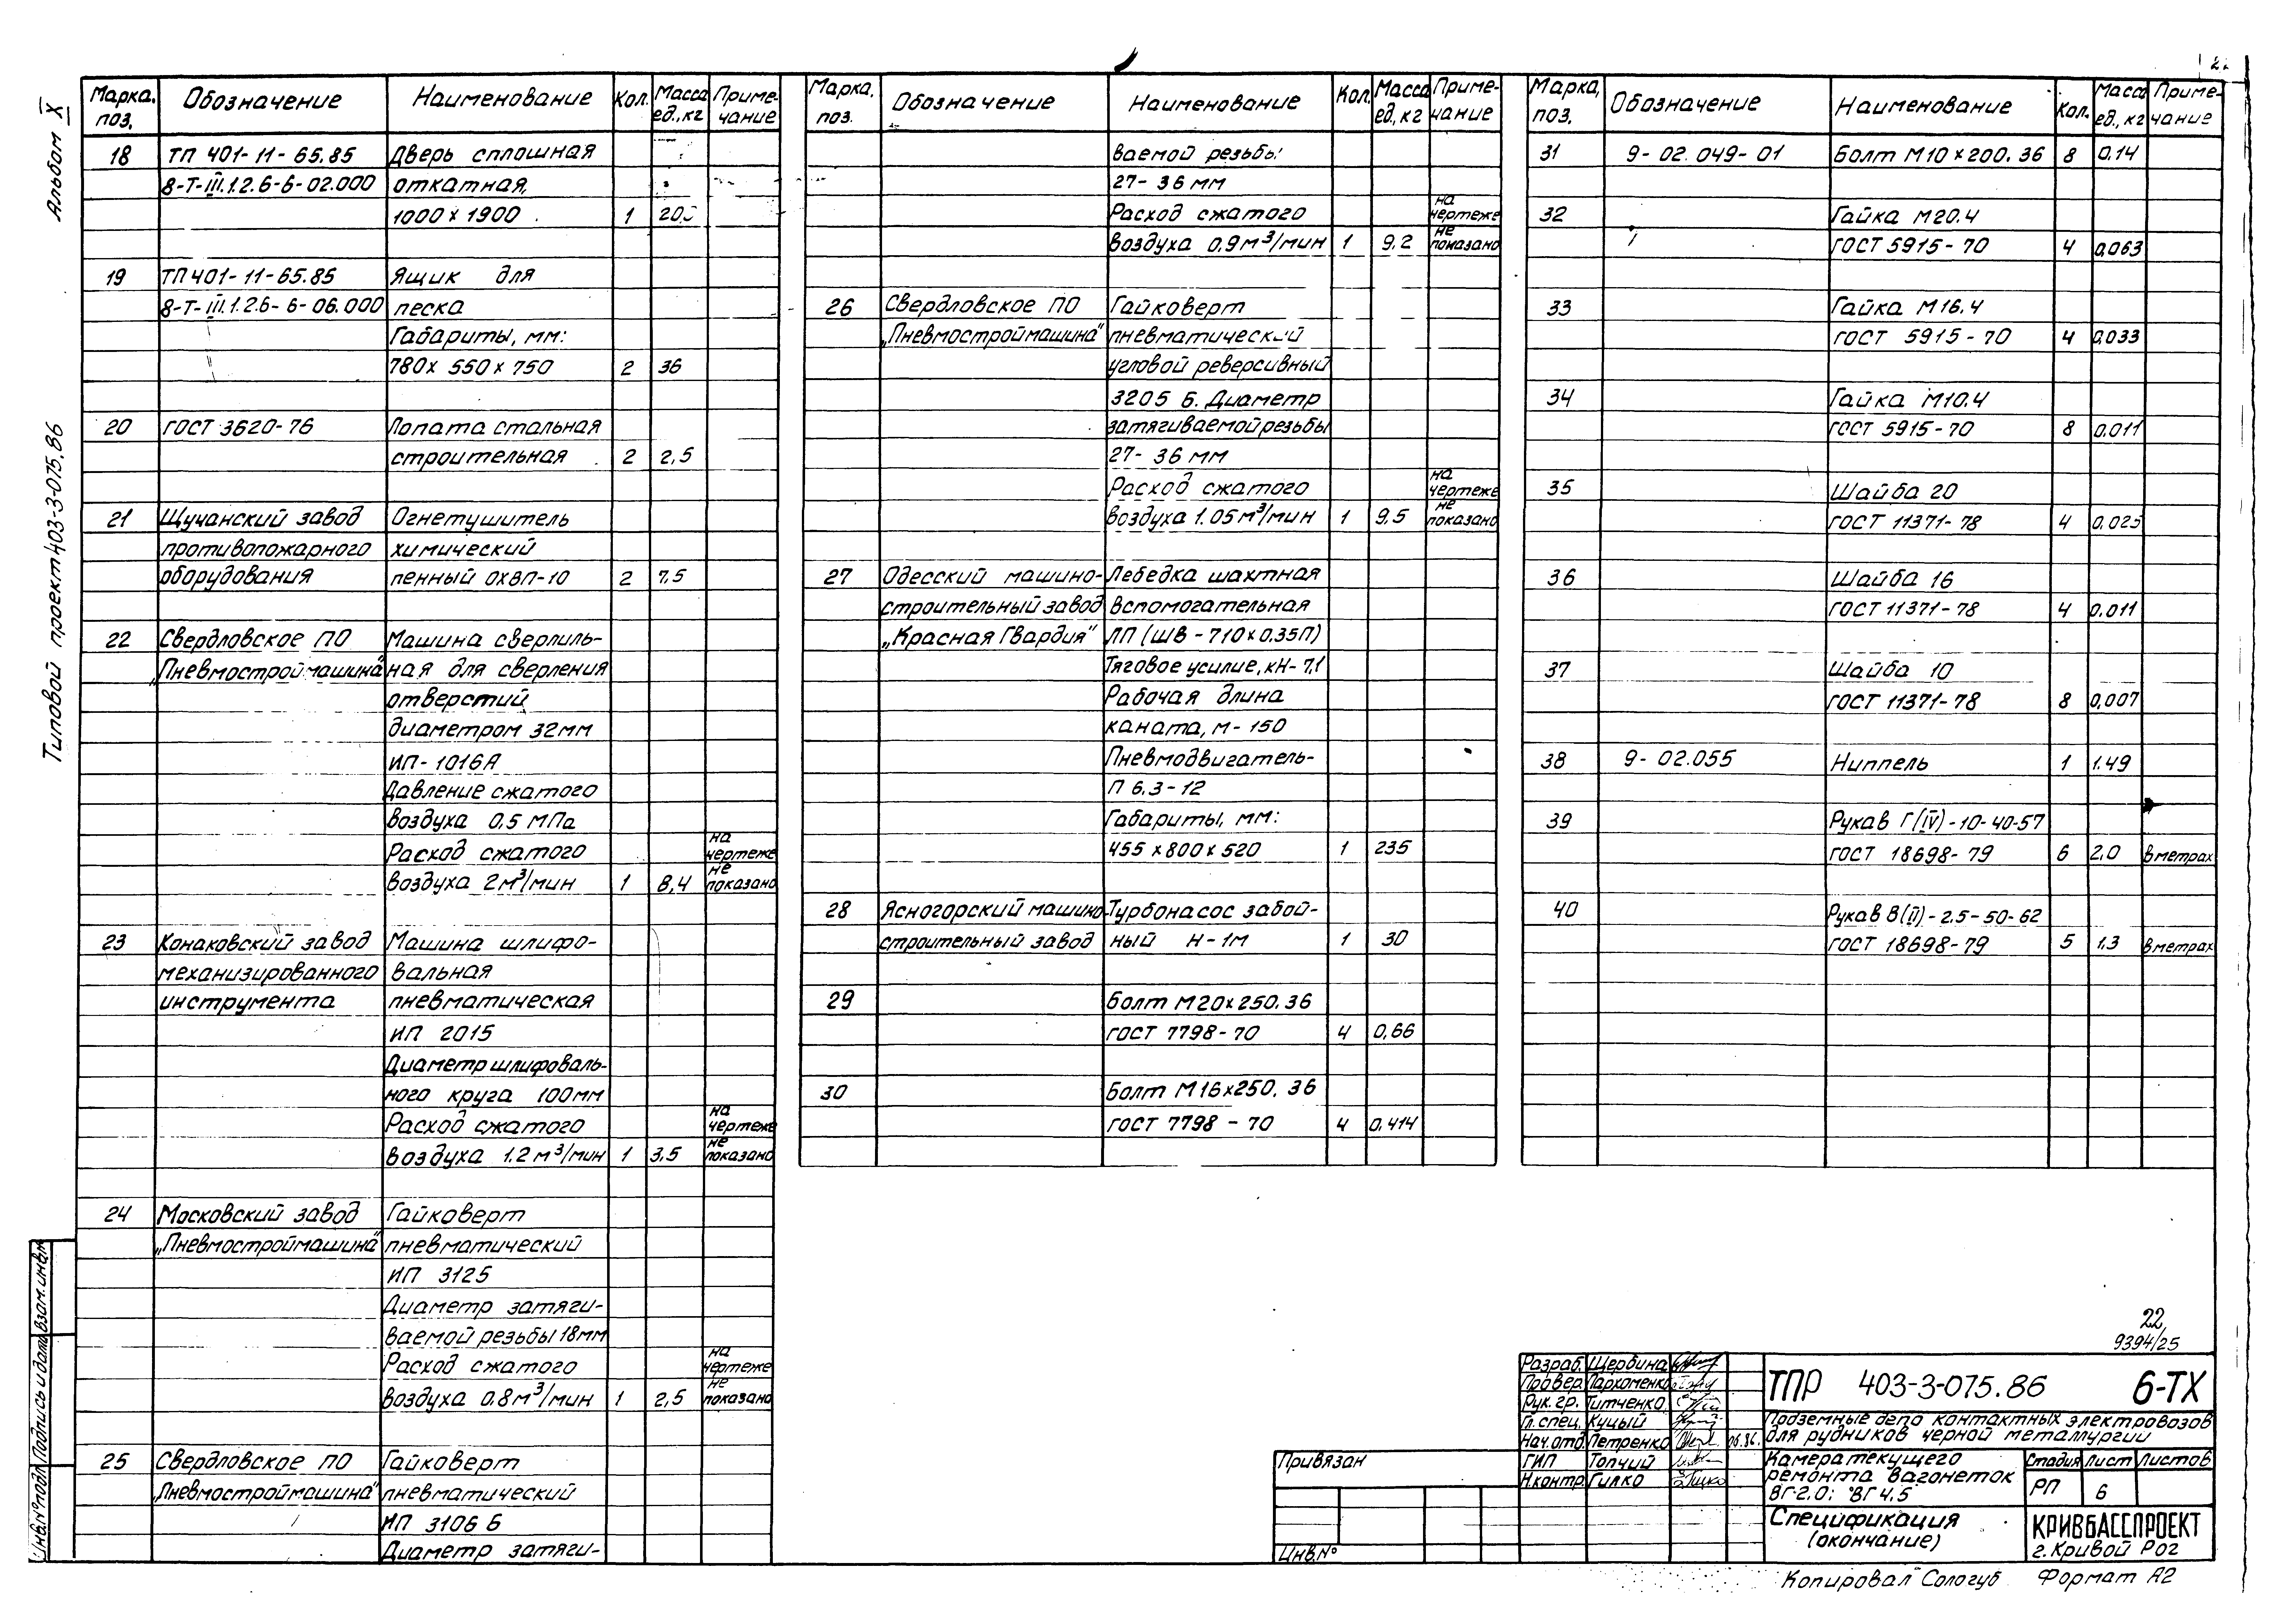 Альбом X
Типовой проект 403-3-075.86
Марка, поз. Обозначение Наименование Кол. Масса ед., кг Примечание
18 ТП 401-11-65.85 Дверь сплошная
8-Т-III.1.2.6-6-02.000 откатная,
1000 х 1900 1
19 ТП 401-11-65.85 Ящик для
8-Т-III.1.2.6-6-06.000 песка
Габариты, мм:
780х 550 х 750 2 36
20 ГОСТ 3620-76 Лопата стальная
строительная 2 2,5
21 Щучанский завод Огнетушитель
противопожарного химический
оборудования пенный ОХВП-10 2 7,5
22 Свердловское ПО Машина сверлиль-
„Пневмостроймашина" ная для сверления
отверстий
диаметром 32мм
ИП-1016А
Давление сжатого
воздуха 0,5 МПа
Расход сжатого на чертеже
воздуха 2м³/мин 1 8,4 не показано
23 Конаковский завод Машина шлифо-
механизированного вальная
инструмента пневматическая
ИП 2015
Диаметр шлифоваль-
ного круга 100мм
Расход сжатого на чертеже
воздуха 1.2 м³/мин 1 3,5 не показано
24 Московский завод Гайковерт
„Пневмостроймашина" пневматический
ИП 3125
Диаметр затяги-
ваемой резьбы 18мм
Расход сжатого на чертеже
воздуха 0.8 м³/мин 1 2,5 не показано
25 Свердловское ПО Гайковерт
„Пневмостроймашина" пневматический
ИП 3106 Б
Диаметр затяги-
Марка, поз. Обозначение Наименование Кол. Масса ед., кг Примечание
ваемой резьбы
27- 36 мм
Расход сжатого на чертеже
воздуха 0.9 м³/мин 1 9.2 не показано
26 Свердловское ПО Гайковерт
„Пневмостроймашина" пневматический
угловой реверсивный
3205 Б. Диаметр
затягиваемой резьбы
27- 36 мм
Расход сжатого на чертеже
воздуха 1.05 м³/мин 1 9,5 не показано
27 Одесский машино- Лебедка шахтная
строительный завод вспомогательная
„Красная Гвардия" ЛП (ШВ - 710 х 0.35П)
Тяговое усилие, кН- 7,1
Рабочая длина
каната, м- 150
Пневмодвигатель-
П 6.3-12
Габариты, мм:
455 х 800 х 520 1 235
28 Ясногорский машино- Турбонасос забой-
строительный завод ный Н-1м 1 30
29 Болт М20х250.36
ГОСТ 7798-70 4 0,66
30 Болт М16х250.36
ГОСТ 7798 - 70 4 0,414
Марка, поз. Обозначение Наименование Кол. Масса ед., кг Примечание
31 9-02.049-01 Болт М10 х 200.36 8 0,14
32 Гайка М20.4
ГОСТ 5915-70 4 0,063
33 Гайка М16.4
ГОСТ 5915-70 4 0,033
34 Гайка М10.4
ГОСТ 5915-70 8 0,011
35 Шайба 20
ГОСТ 11371-78 4 0,025
36 Шайба 16
ГОСТ 11371-78 4 0,011
37 Шайба 10
ГОСТ 11371-78 8 0,007
38 9-02.055 Ниппель 1 1.49
39 Рукав Г(IV)-10-40-57
ГОСТ 18698-79 6 2,0 в метрах
40 Рукав В(II)-2.5-50-62
ГОСТ 18698-79 5 1,3 в метрах
22
9394/25
Разраб. Щербина
Провер. Пархоменко
Рук. гр. Титченко
Гл. спец. Куцый
Нач. отд. Петренко 06.86.
ГИП Топчий
Н.контр. Гилко
ТПР 403-3-075.86 6-ТХ
Подземные депо контактных электровозов
для рудников черной металлургии
Камера текущего
ремонта вагонеток
ВГ-2.0; ВГ 4,5
Стадия Лист Листов
РП 6
Спецификация
(окончание)
КРИВБАССПРОЕКТ
г. Кривой Рог
Привязан
Инв.№
Инв.№ подл. Подпись и дата Взам. инв.№
Копировал Сологуб Формат А2